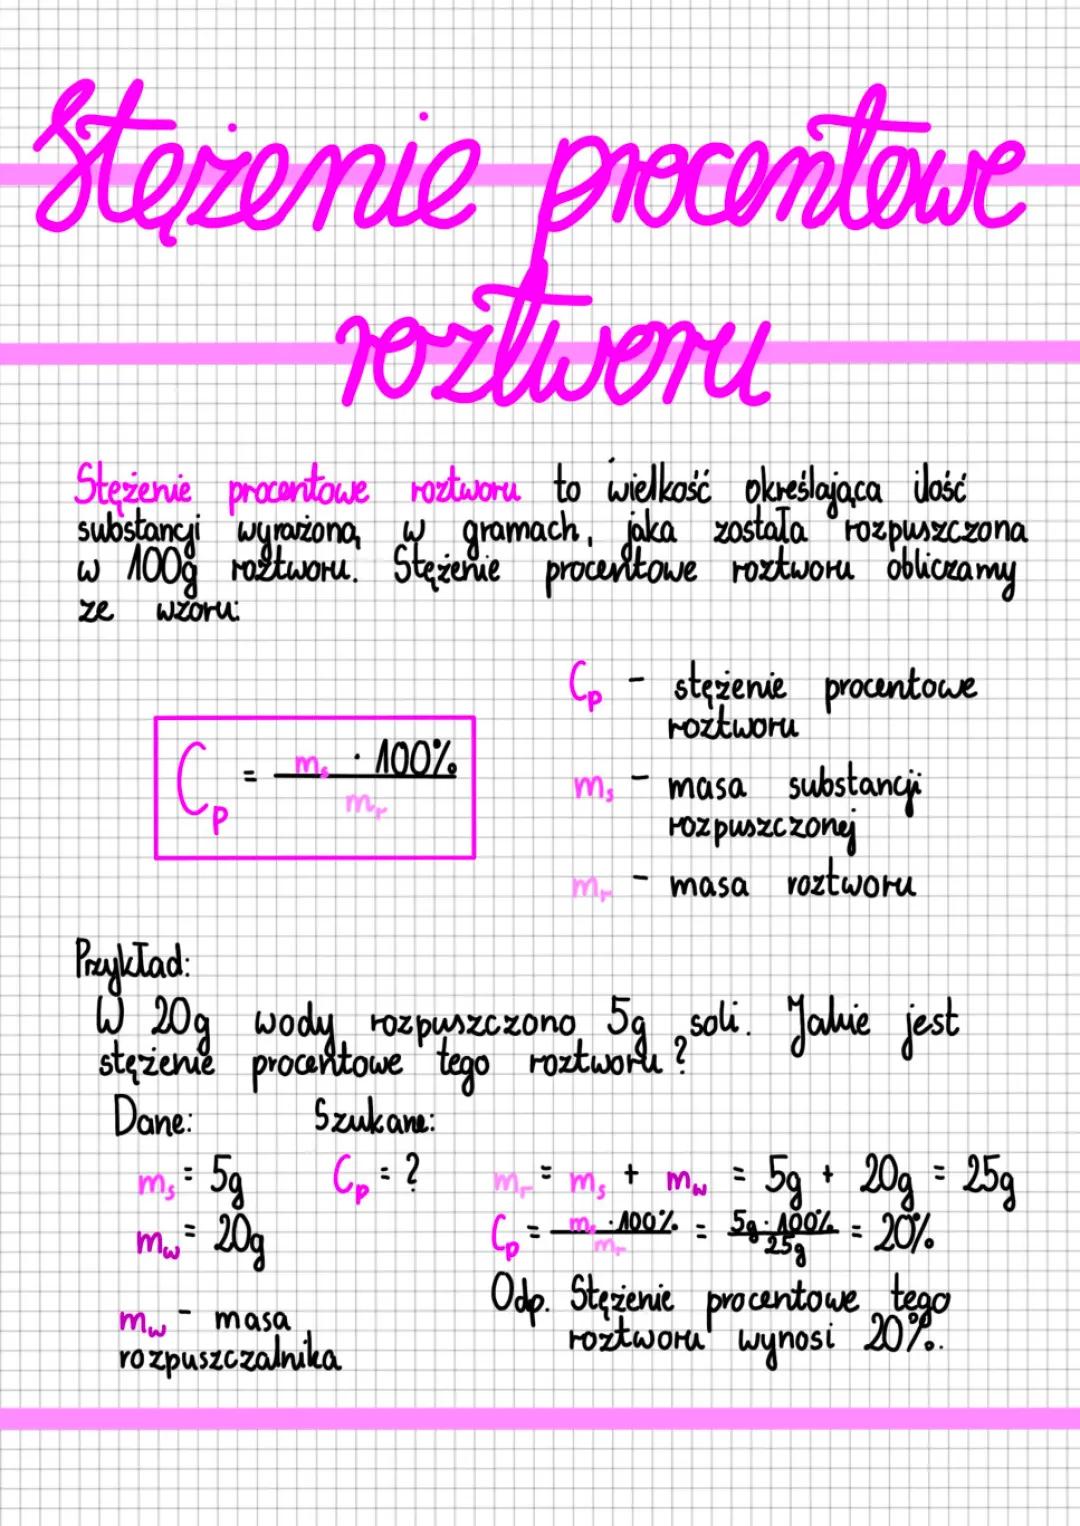 Stężenie procentowe
roztworu
Stężenie procentowe roztworu to wielkość określająca ilość
substancji wyrażoną w gramach, jaka została rozpuszczona
w 100g roztworu. Stężenie procentowe roztworu obliczamy
ze wzoru:
Cp - stężenie procentowe
roztworu
Cp = ms · 100%
mr
ms - masa substancji
rozpuszczonej
mr - masa roztworu
Przykład:
W 20g wody rozpuszczono 5g soli. Jakie jest
stężenie procentowe tego roztworu?
Dane: Szukane:
ms = 5g Cp = ? mr = ms + mw = 5g + 20g = 25g
mw = 20g Cp = ms · 100% / mr = 5g · 100% / 25g = 20%
Odp. Stężenie procentowe tego
roztworu wynosi 20%.
mw - masa
rozpuszczalnika